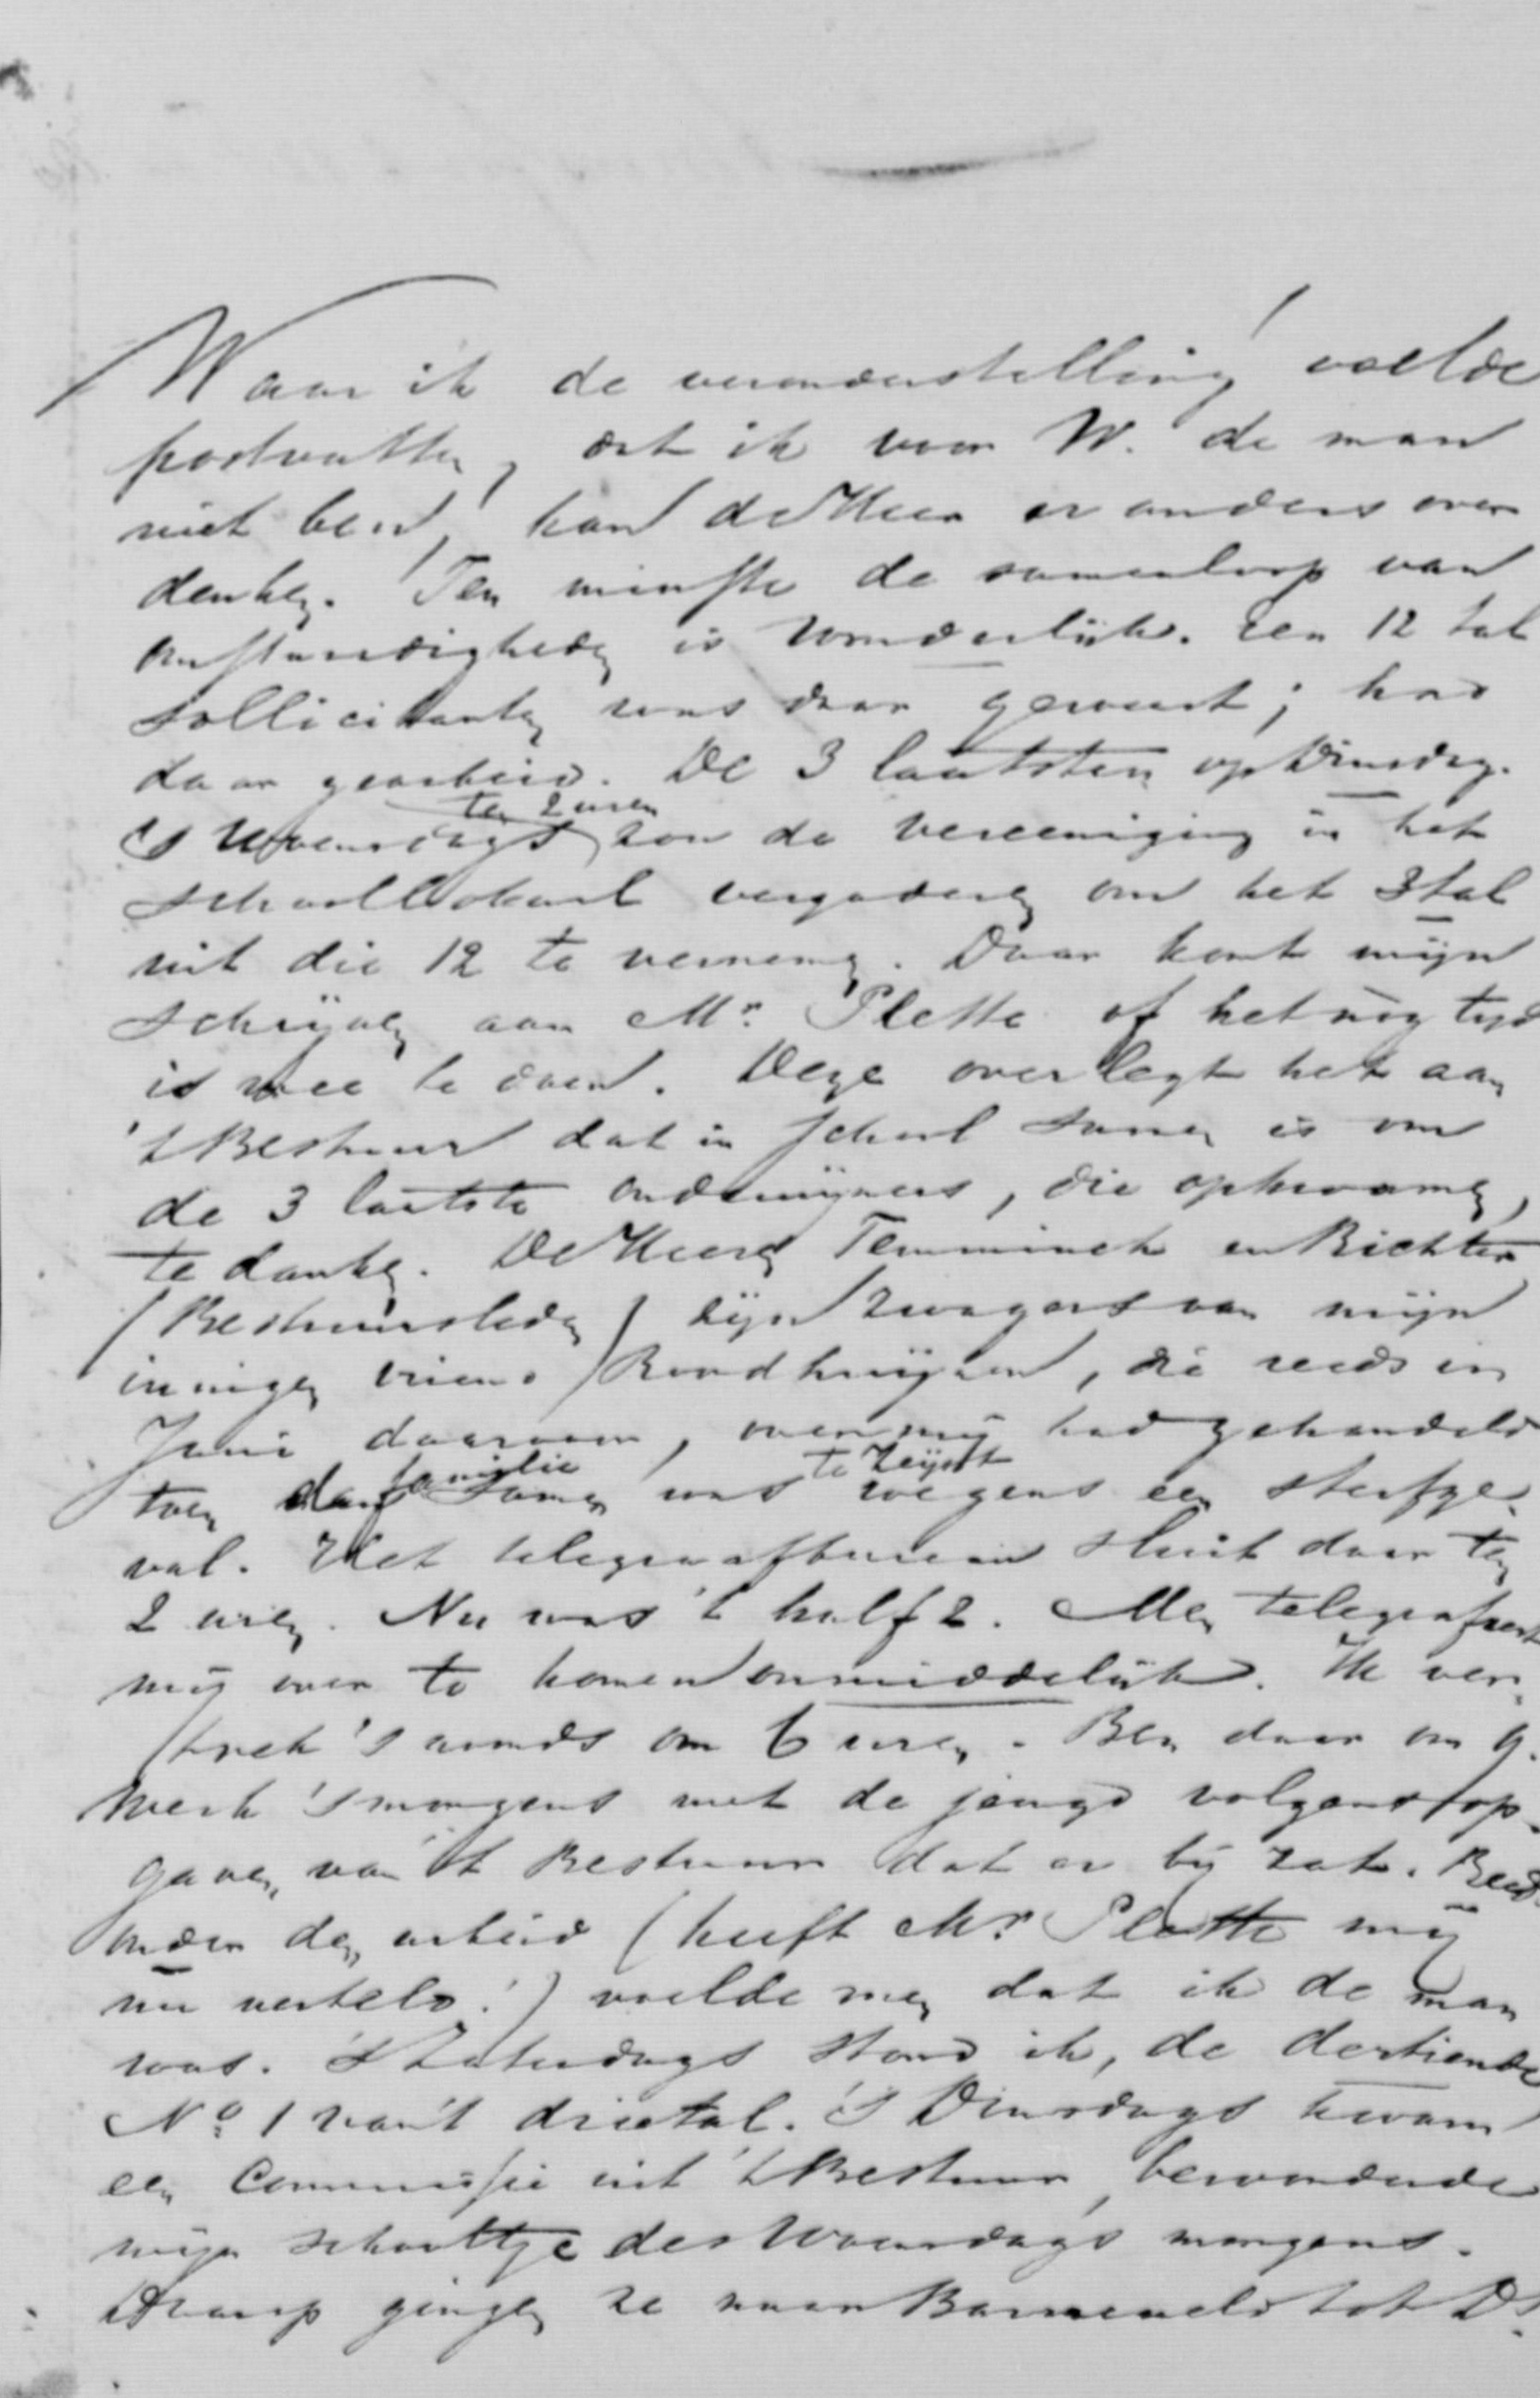 Waar ik de veronderstelling voelde
postvatten, dat ik voor W. de man
niet ben, kan de Heer er anders over
denken. Ten minste de samenloop van
omstandigheden is wonderlijk. Een 12 tal
sollicitanten was daar geweest; had
daar gearbeid. De 3 laatsten op Dinsdag.
's Woensdags ten 2 uren zou de vereeniging in het
schoollokaal vergaderen om het 3tal
uit die 12 te vernemen. Daar komt mijn
schrijven aan Mr. Plette of het nog tijd
is mee te doen. Deze overlegt het aan
't Bestuur dat in school samen is om
de 3 laatste ondermijners, die opkwamen,
te danken. De Heeren Temminck en Richter
(Bestuursleden) zijn zwagers van mijn
innigen vriend Bondhuijzen, die reeds in
Juni daarvan, over mij had gehandeld
toen de familie samen was te Zeijst wegens een sterfge-
val. Het telegraafbureau sluit daar ten
2 uren. Nu was 't half 2. Men telegrafeert
mij over te komen onmiddelijk. Ik ver-
trek 's avonds om 6 uren. Ben daar om 9.
Werk 's morgens met de jeugd volgens op-
gaven van 't Bestuur dat er bij zat. Reeds
onder den arbeid (heeft Mr. Plette mij
nu verteld!) voelde men dat ik de man
was. 's Zaturdags stond ik, de dertiende
No. 1 van 't drietal. 's Dinsdags kwam
een Commissie uit 't Bestuur, bewonderde
mijn schooltje des Woensdags morgens.
Daarop gingen ze naar Barneveld tot Ds.